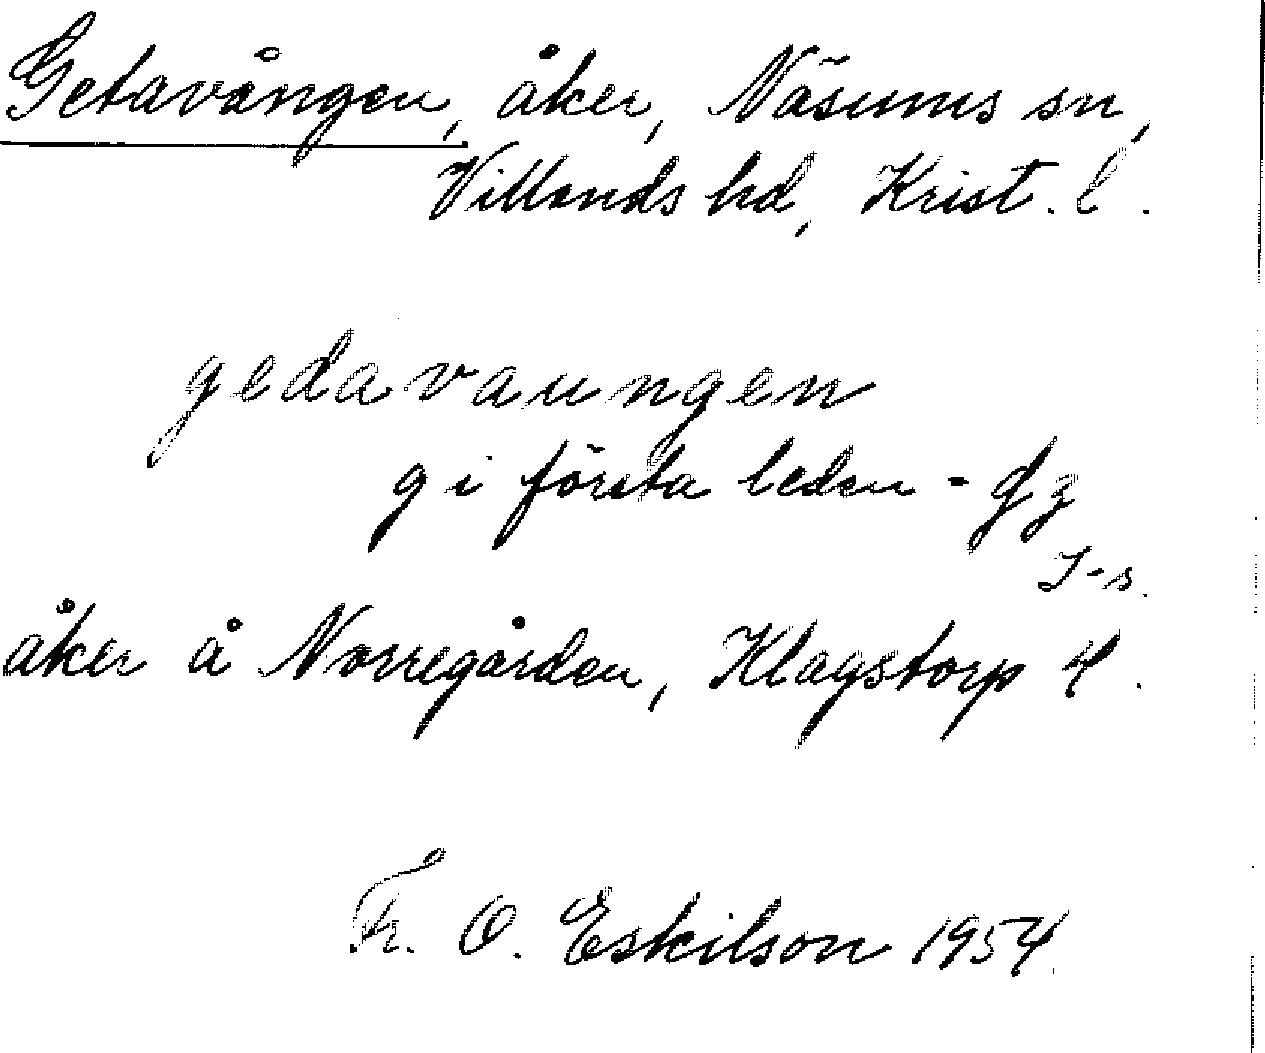 Getavången, åker, Näsums sn,
Villands hd, Krist. l.
gedavaungen
g i första leden -
åker å Norregården, Klagstorp 4.
Fr. O. Eskilson 1954.